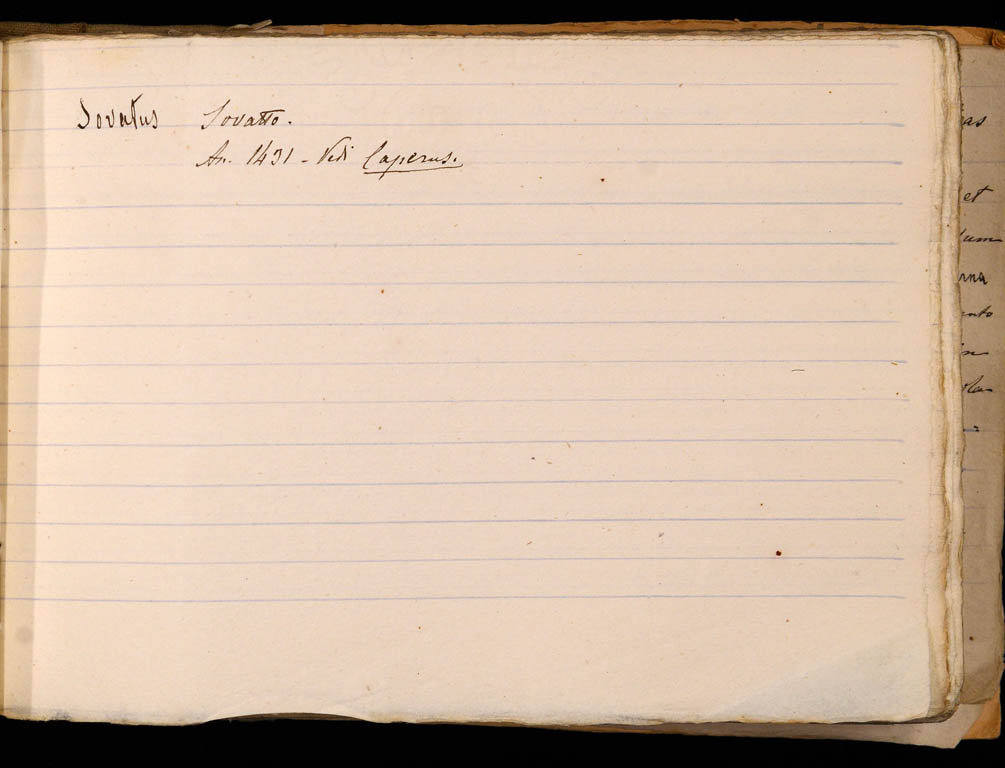 Sovatus Sovatto.
An. 1431 - Vedi Caperus.
as
et
um
rna
ento
in
ola